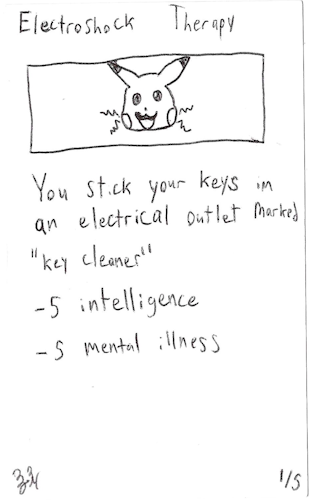 Electroshock Therapy
You stick your keys in
an electrical outlet marked
"key cleaner"
-5 intelligence
-5 mental illness
1/5